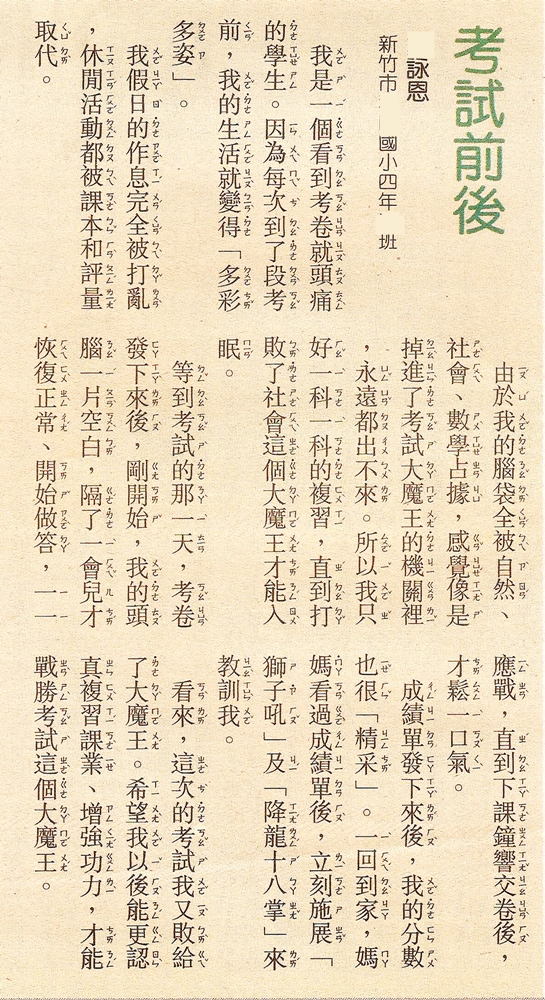 考試前後
詠恩
新竹市 國小四年 班
我是一個看到考卷就頭痛
的學生。因為每次到了段考
前，我的生活就變得「多彩
多姿」。
我假日的作息完全被打亂
，休閒活動都被課本和評量
取代。
由於我的腦袋全被自然、
社會、數學占據，感覺像是
掉進了考試大魔王的機關裡
，永遠都出不來。所以我只
好一科一科的複習，直到打
敗了社會這個大魔王才能入
眠。
等到考試的那一天，考卷
發下來後，剛開始，我的頭
腦一片空白，隔了一會兒才
恢復正常、開始做答，一一
應戰，直到下課鐘響交卷後，
才鬆一口氣。
成績單發下來後，我的分數
也很「精采」。一回到家，媽
媽看過成績單後，立刻施展「
獅子吼」及「降龍十八掌」來
教訓我。
看來，這次的考試我又敗給
了大魔王。希望我以後能更認
真複習課業、增強功力，才能
戰勝考試這個大魔王。